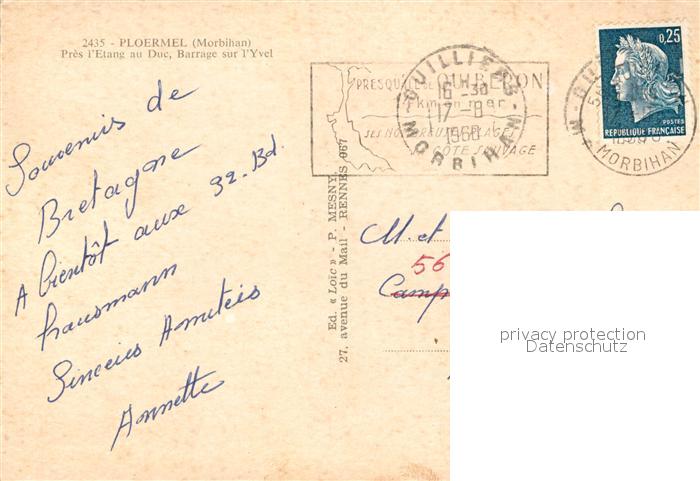 2435 - PLOERMEL (Morbihan)
Près l'Etang au Duc, Barrage sur l'Yvel
Souvenis de
Bretagne
A bientôt aux 32. Bd.
haussmann
Sinceies Amitéis
Annette
Ed. « Loïc » - P. MESNY
27, avenue du Mail - RENNES 067
PRESQU'ILE DE QUIBERON
km en mer
SES NOMBREUSES PLAGES
SA CÔTE SAUVAGE
QUIBERON
16-30
17-8
1969
MORBIHAN
0,25
POSTES
REPUBLIQUE FRANÇAISE
MORBIHAN
M. et
56
Camp
privacy protection
Datenschutz